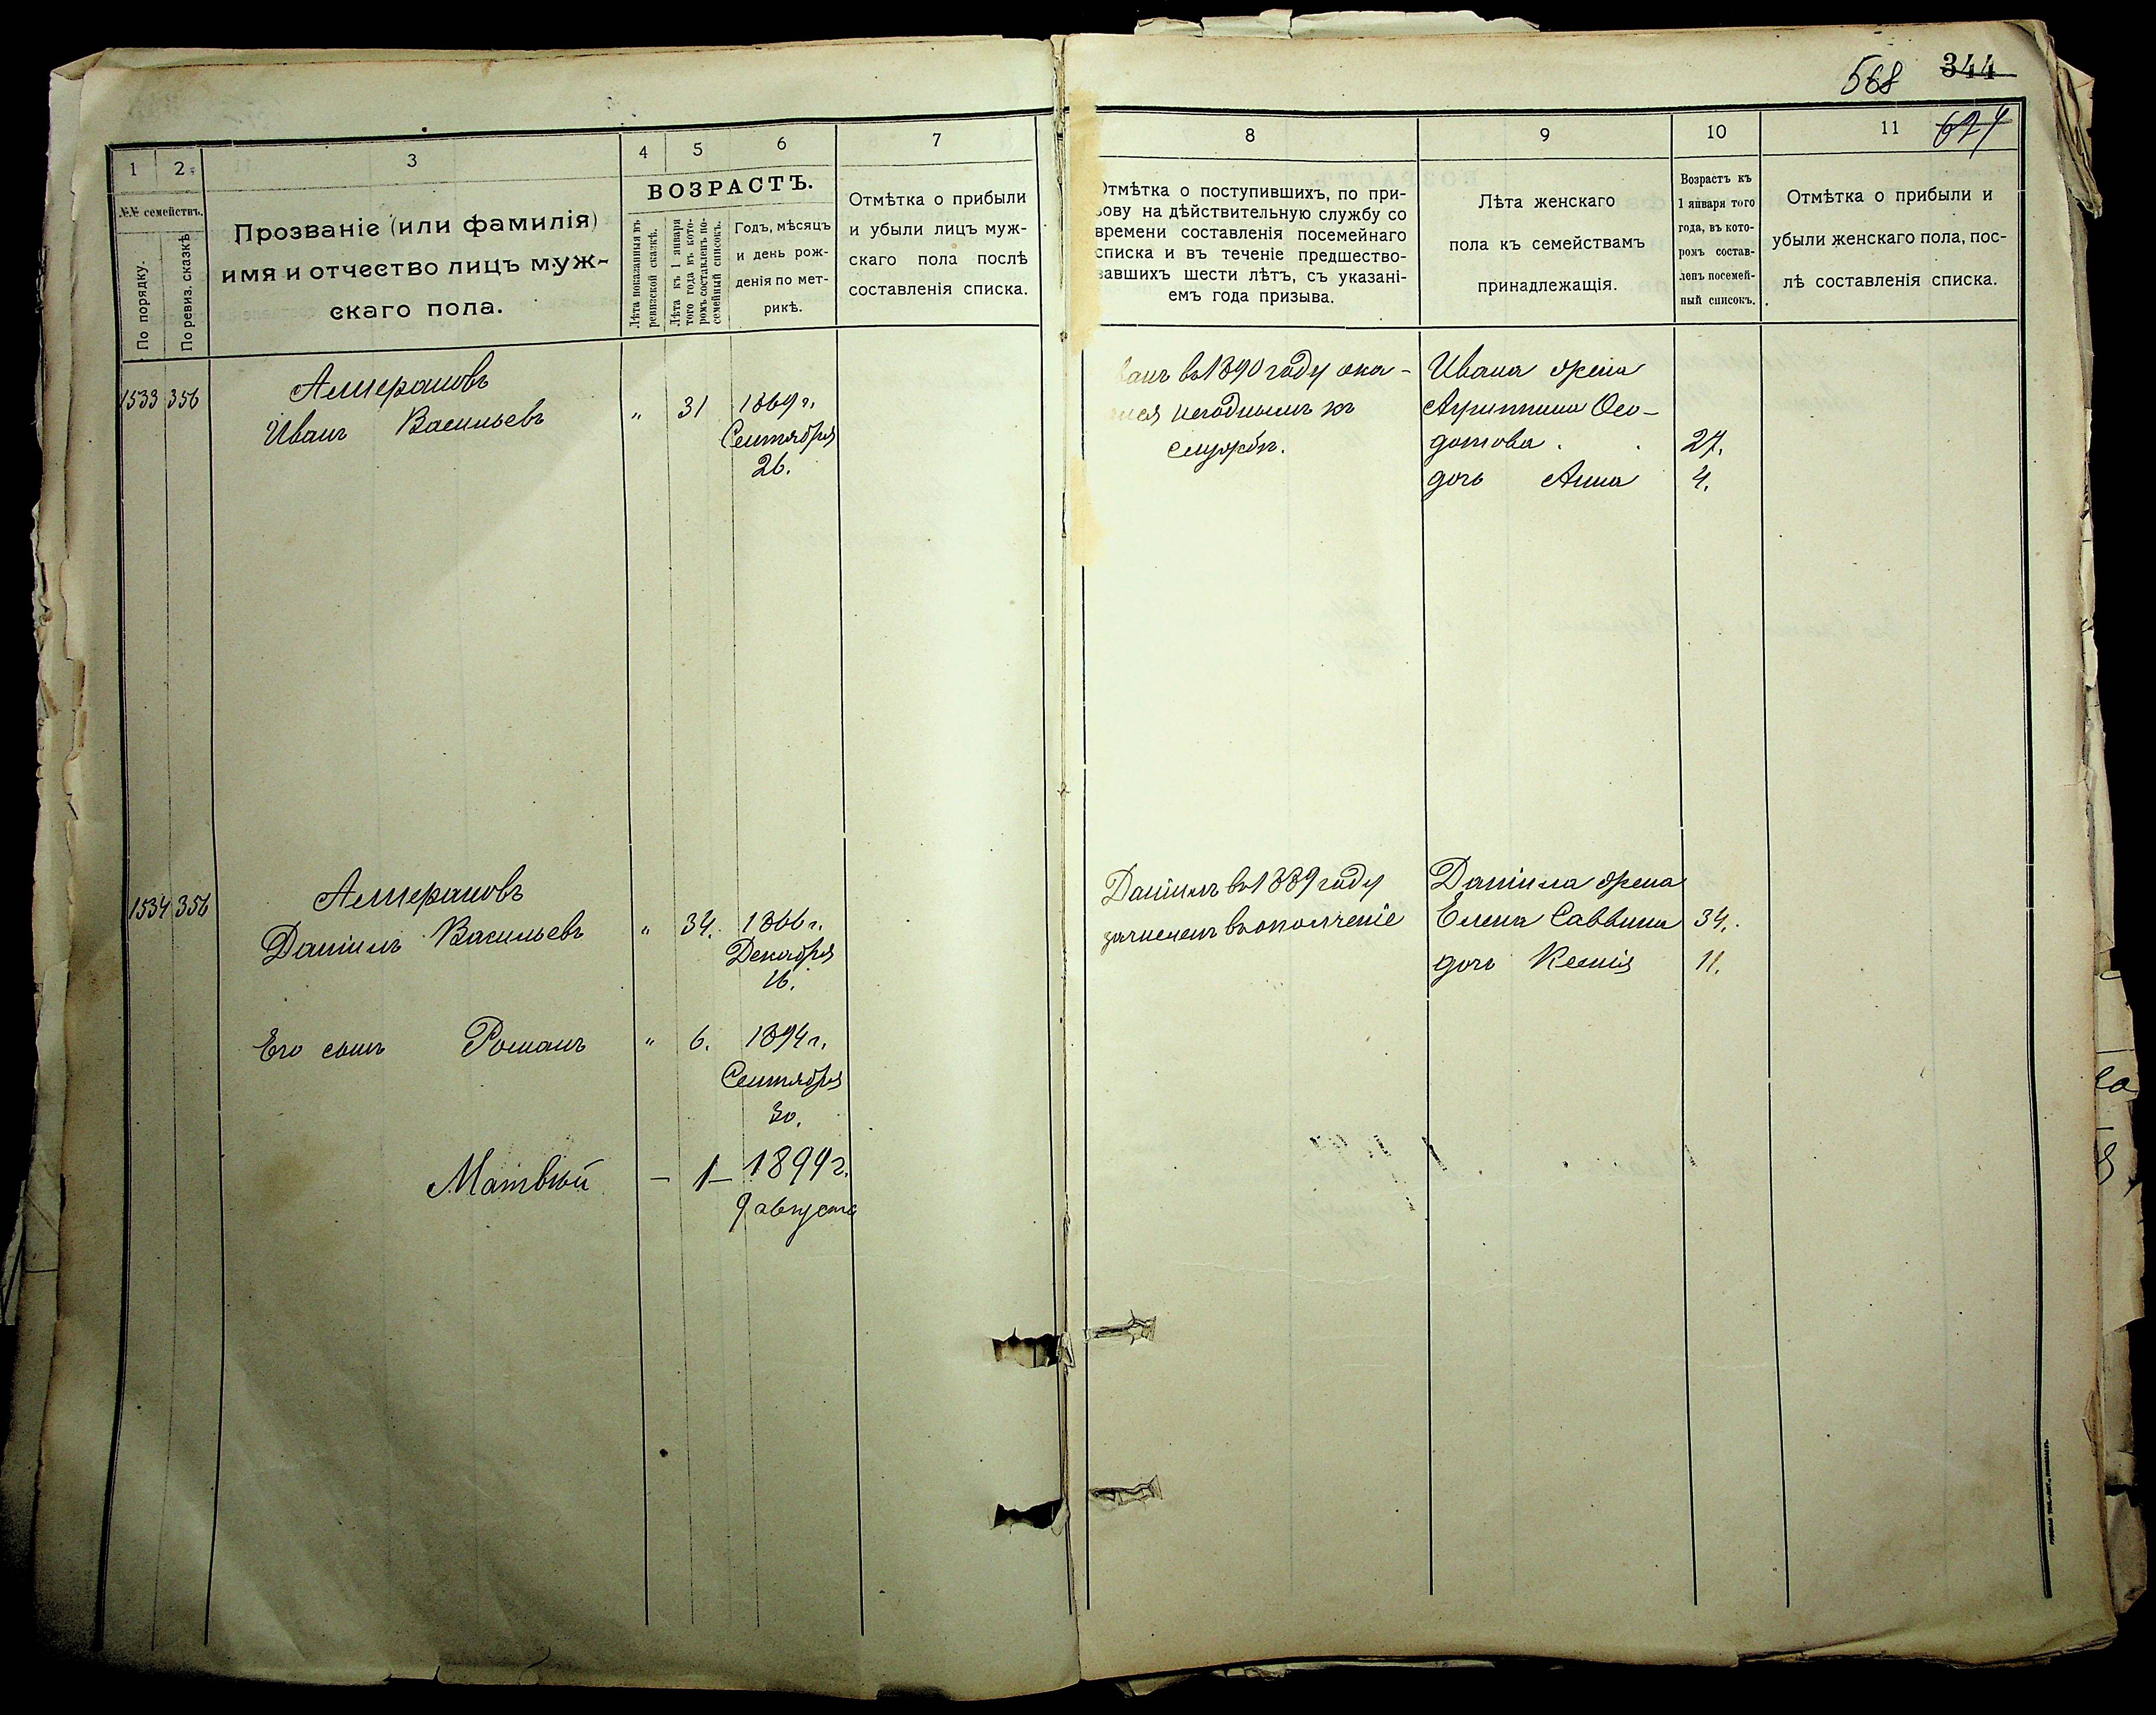 568 344
674
1 2 3 4 5 6 7
№№ семействъ.
По порядку.
По ревиз. сказкѣ
Прозваніе (или фамилія)
имя и отчество лицъ муж-
скаго пола.
ВОЗРАСТЪ.
Лѣта показанныя въ
ревизской сказкѣ.
Лѣта къ 1 января
того года въ кото-
ромъ составленъ по-
семейный списокъ.
Годъ, мѣсяцъ
и день рож-
денія по мет-
рикѣ.
Отмѣтка о прибыли
и убыли лицъ муж-
скаго пола послѣ
составленія списка.
8 9 10 11
Отмѣтка о поступившихъ, по при-
зову на дѣйствительную службу со
времени составленія посемейнаго
списка и въ теченіе предшество-
вавшихъ шести лѣтъ, съ указані-
емъ года призыва.
Лѣта женскаго
пола къ семействамъ
принадлежащія.
Возрастъ къ
1 января того
года, въ кото-
ромъ состав-
ленъ посемей-
ный списокъ.
Отмѣтка о прибыли и
убыли женскаго пола, пос-
лѣ составленія списка.
1533 356
Иванъ Васильевъ " 31 1869 г.
Сентября
26.
ванъ въ 1890 году ока-
лся негоднымъ къ
службѣ.
Ивана жена
Агриппина Ѳео-
дотова. 27.
дочь Анна 4.
1534 356
Даніилъ Васильевъ " 34. 1866 г.
Декабря
16.
Даніилъ въ 1889 году
зачисленъ въ ополченіе
Даніила жена
Елена Саввина 34.
дочь Ксенія 11.
Его сынъ Романъ " 6. 1894 г.
Сентября
30.
Матвѣй – 1 – 1899 г.
9 августа